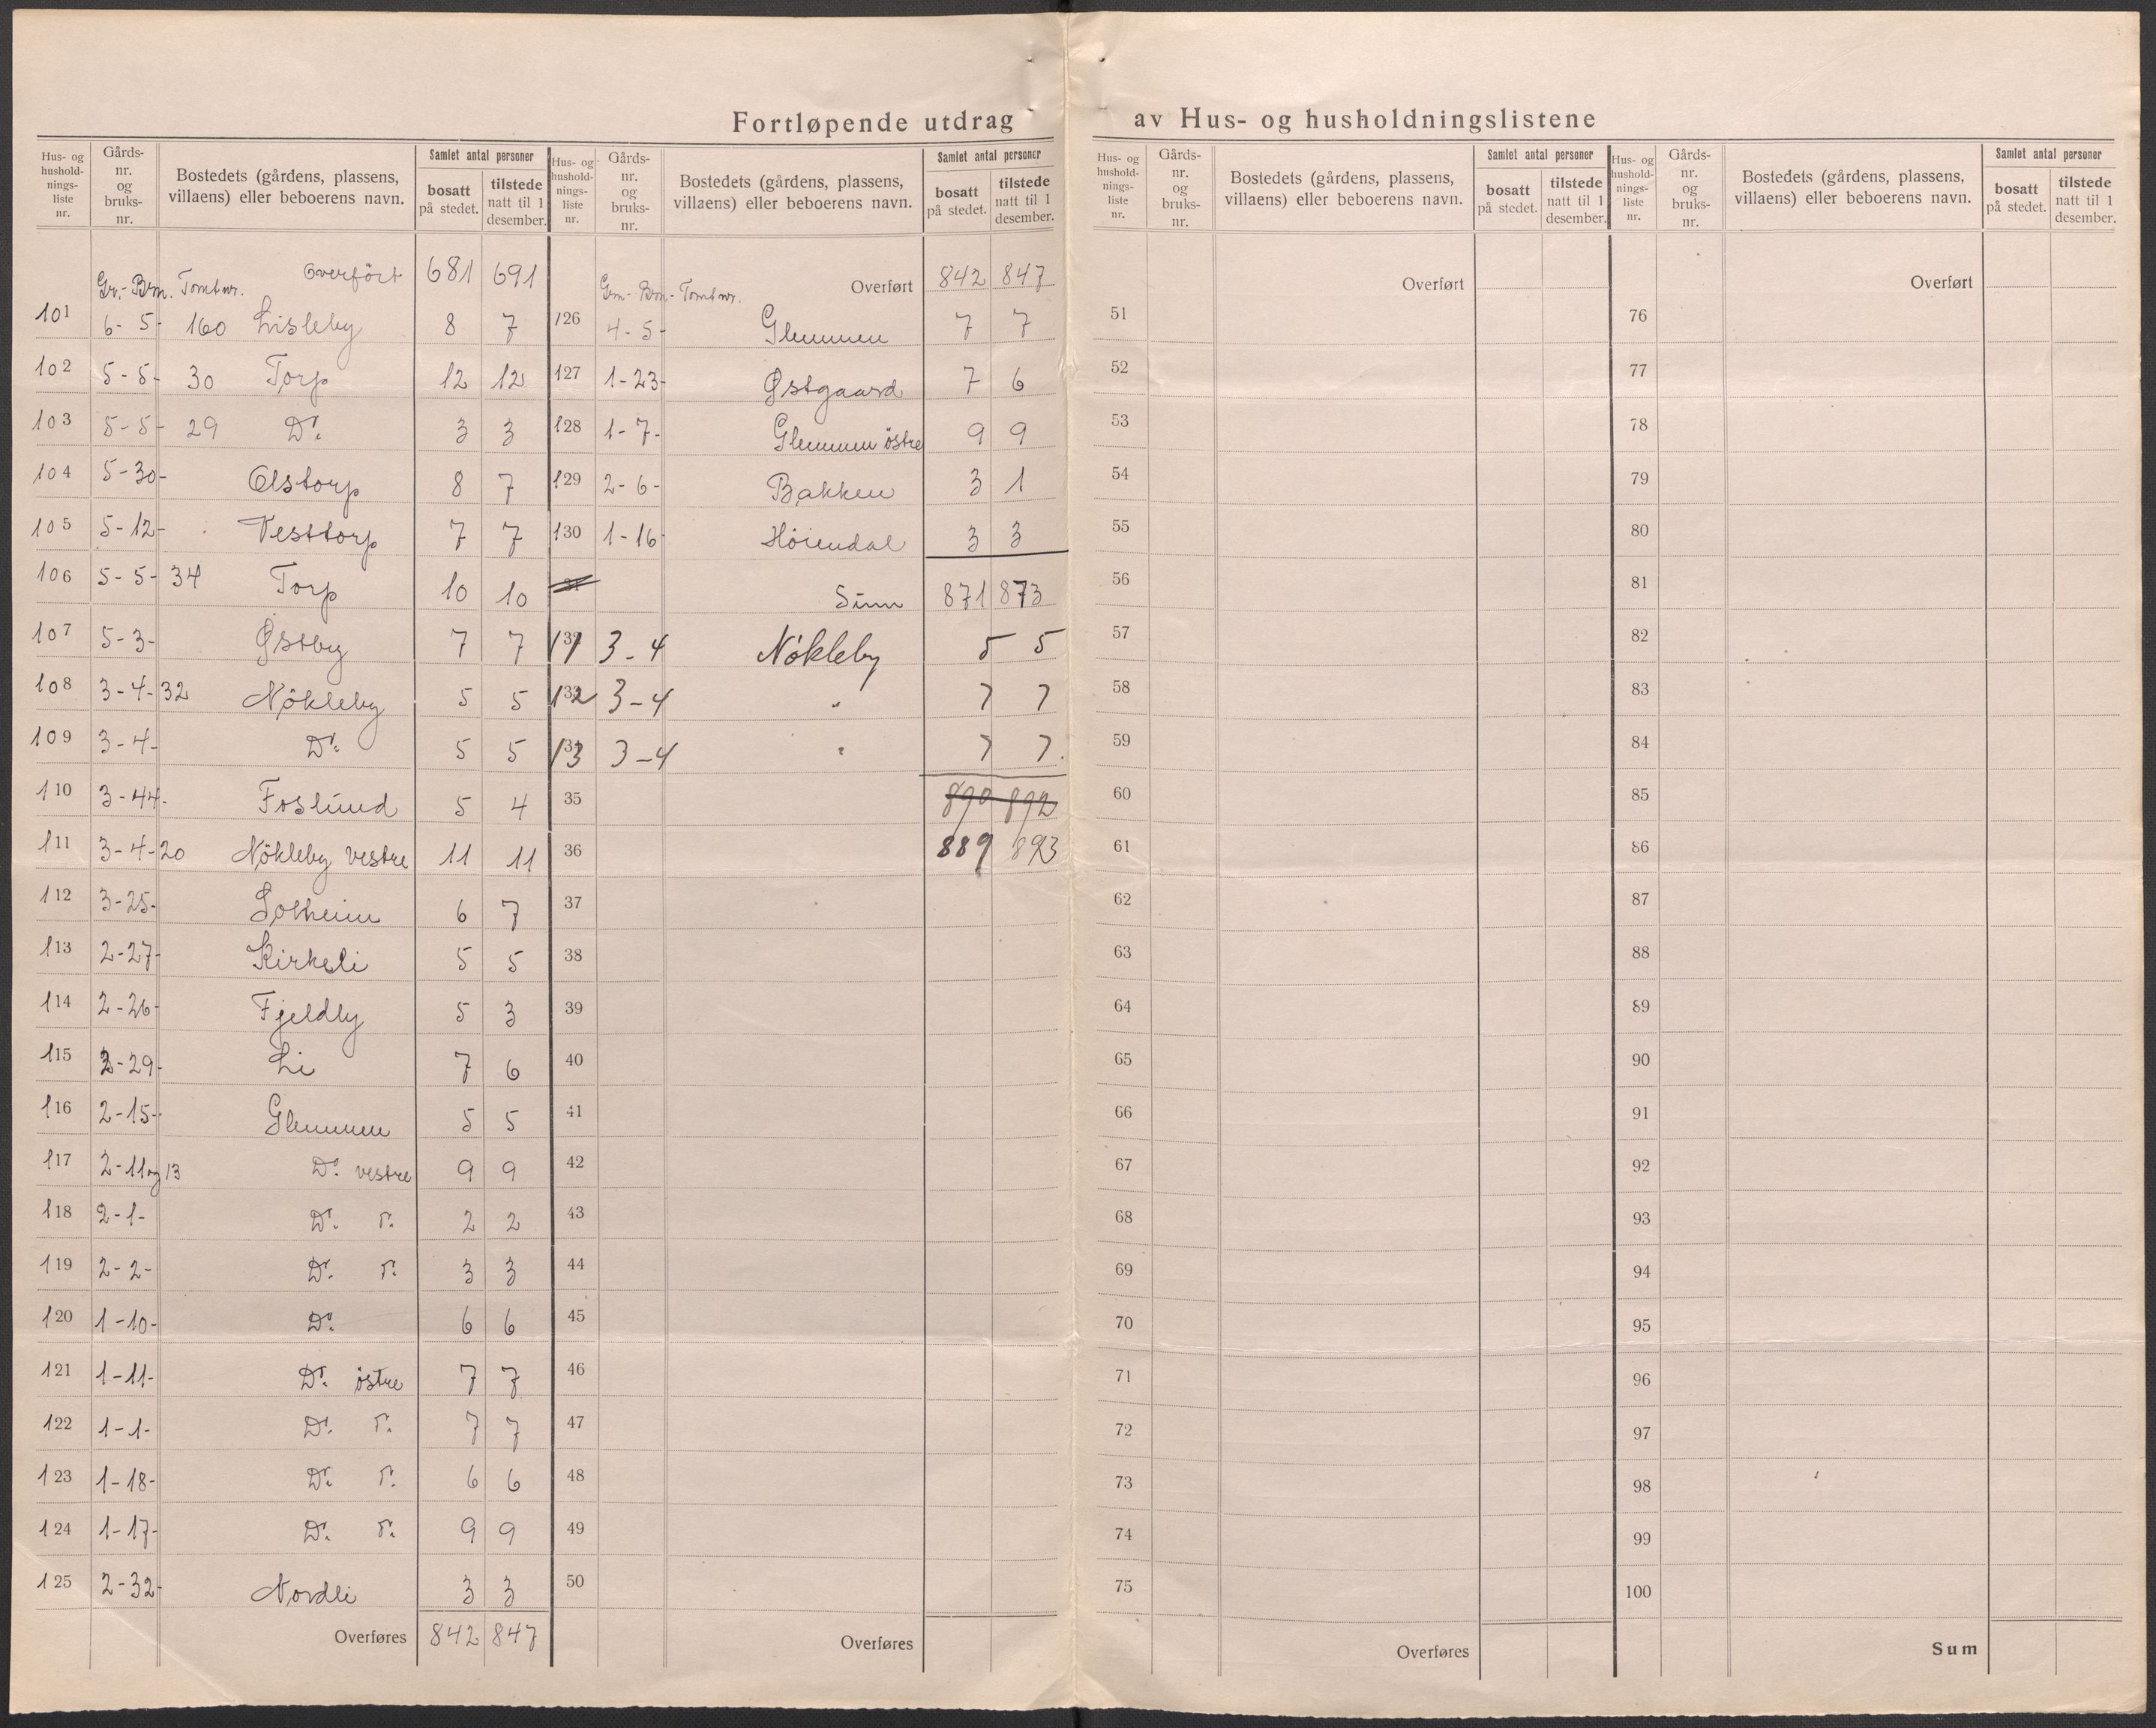 Fortløpende utdrag av Hus- og husholdningslistene
Hus- og husholdnings- liste nr. | Gårds- nr. og bruks- nr. | Bostedets (gårdens, plassens, villaens) eller beboerens navn. | Samlet antal personer | bosatt på stedet. | tilstede natt til 1 desember.
Gr.- Brn. Tomt nr. Overført 681 691
101 6-5- 160 Lisleby 8 7
102 5-5- 30 Torp 12 12
103 5-5- 29 Do. 3 3
104 5-30- Olstorp 8 7
105 5-12- Vesttorp 7 7
106 5-5- 34 Torp 10 10
107 5-3- Østby 7 7
108 3-4- 32 Nökleby 5 5
109 3-4- Do. 5 5
110 3-44- Foslund 5 4
111 3-4-20 Nökleby vestre 11 11
112 3-25- Solheim 6 7
113 2-27- Kirkeli 5 5
114 2-26- Fjeldly 5 3
115 2-29- Li 7 6
116 2-15- Glemmen 5 5
117 2-11 og 13 Do. vestre 9 9
118 2-1- Do. Do. 2 2
119 2-2- Do. Do. 3 3
120 1-10- Do. 6 6
121 1-11- Do. östre 7 7
122 1-1- Do. Do. 7 7
123 1-18- Do. Do. 6 6
124 1-17- Do. Do. 9 9
125 2-32- Nordli 3 3
Overføres 842 847
Hus- og husholdnings- liste nr. | Gårds- nr. og bruks- nr. | Bostedets (gårdens, plassens, villaens) eller beboerens navn. | Samlet antal personer | bosatt på stedet. | tilstede natt til 1 desember.
Grn- Brn- Tomt nr. Overført 842 847
126 4-5- Glemmen 7 7
127 1-23- Østgaard 7 6
128 1-7- Glemmen östre 9 9
129 2-6- Bakken 3 1
130 1-16- Höiendal 3 3
31 Sum 871 873
131 3-4 Nökleby 5 5
132 3-4 " 7 7
133 3-4 " 7 7.
35 890 892
36 889 893
37
38
39
40
41
42
43
44
45
46
47
48
49
50
Overføres
Hus- og husholdnings- liste nr. | Gårds- nr. og bruks- nr. | Bostedets (gårdens, plassens, villaens) eller beboerens navn. | Samlet antal personer | bosatt på stedet. | tilstede natt til 1 desember.
Overført
51
52
53
54
55
56
57
58
59
60
61
62
63
64
65
66
67
68
69
70
71
72
73
74
75
Overføres
Hus- og husholdnings- liste nr. | Gårds- nr. og bruks- nr. | Bostedets (gårdens, plassens, villaens) eller beboerens navn. | Samlet antal personer | bosatt på stedet. | tilstede natt til 1 desember.
Overført
76
77
78
79
80
81
82
83
84
85
86
87
88
89
90
91
92
93
94
95
96
97
98
99
100
Sum